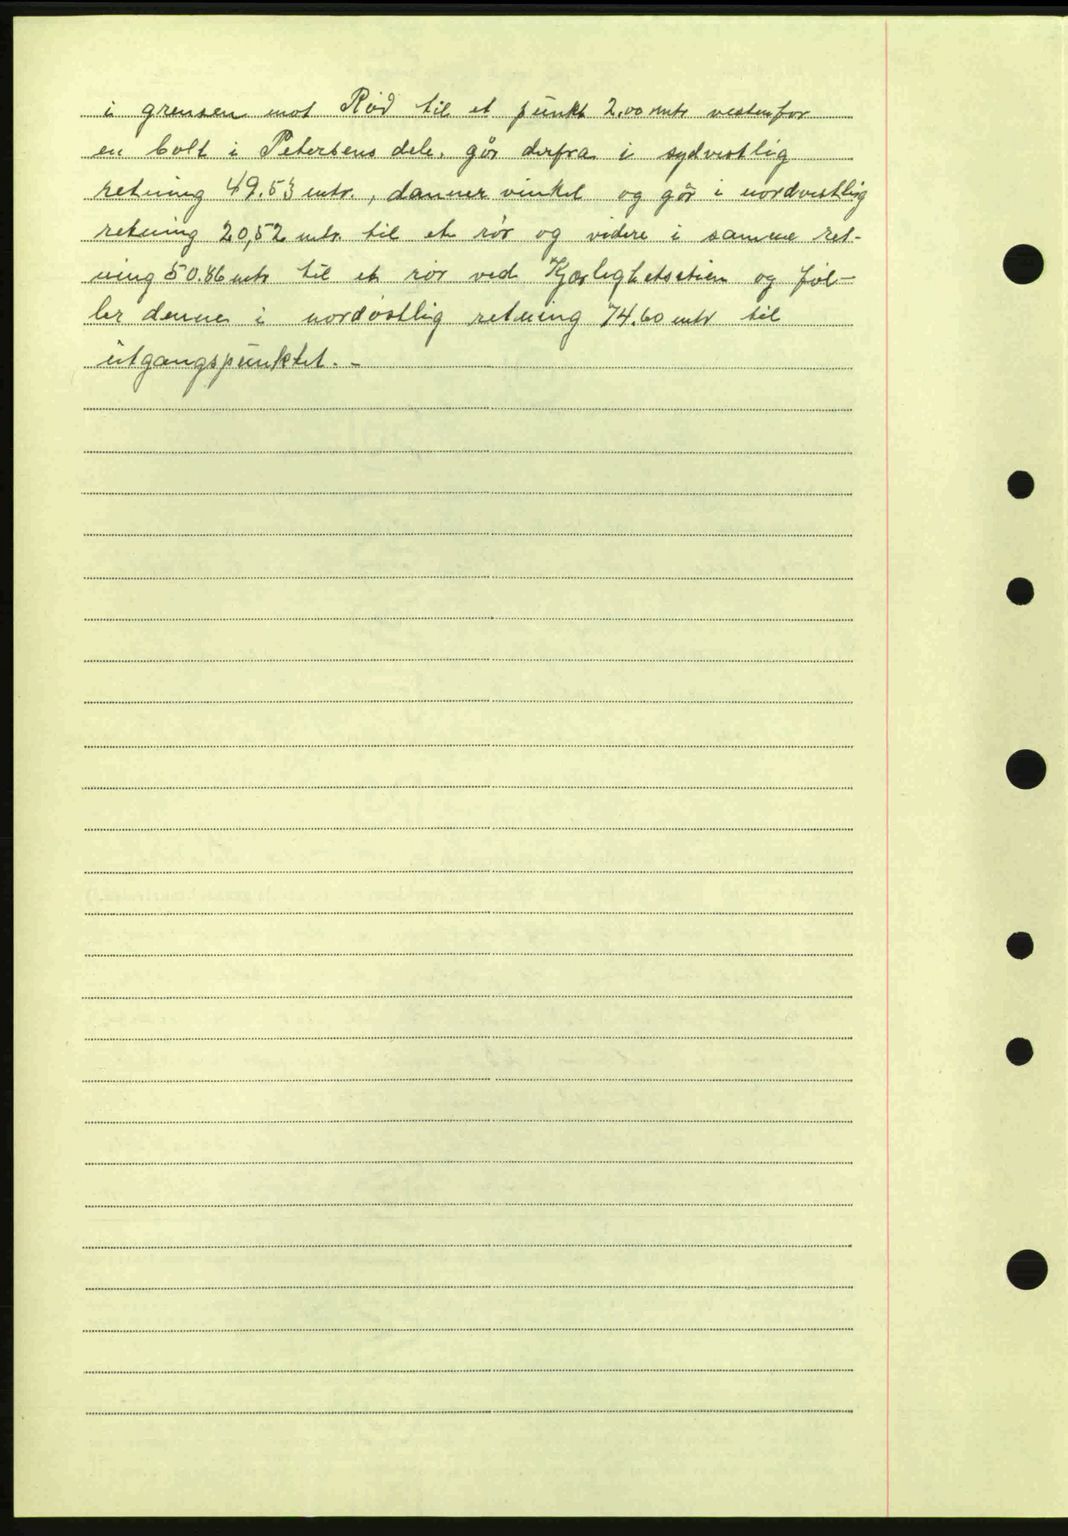 i grensen mot Rød til et punkt 2.00 mtr vestenfor
en bolt i Petersens dele, går derfra i sydvestlig
retning 49.53 mtr., danner vinkel og går i nordvestlig
retning 20,52 mtr. til et rør og videre i samme ret-
ning 50.86 mtr til et rør ved Kjærlighetsstien og føl-
ler denne i nordøstlig retning 74.60 mtr til
utgangspunktet. -